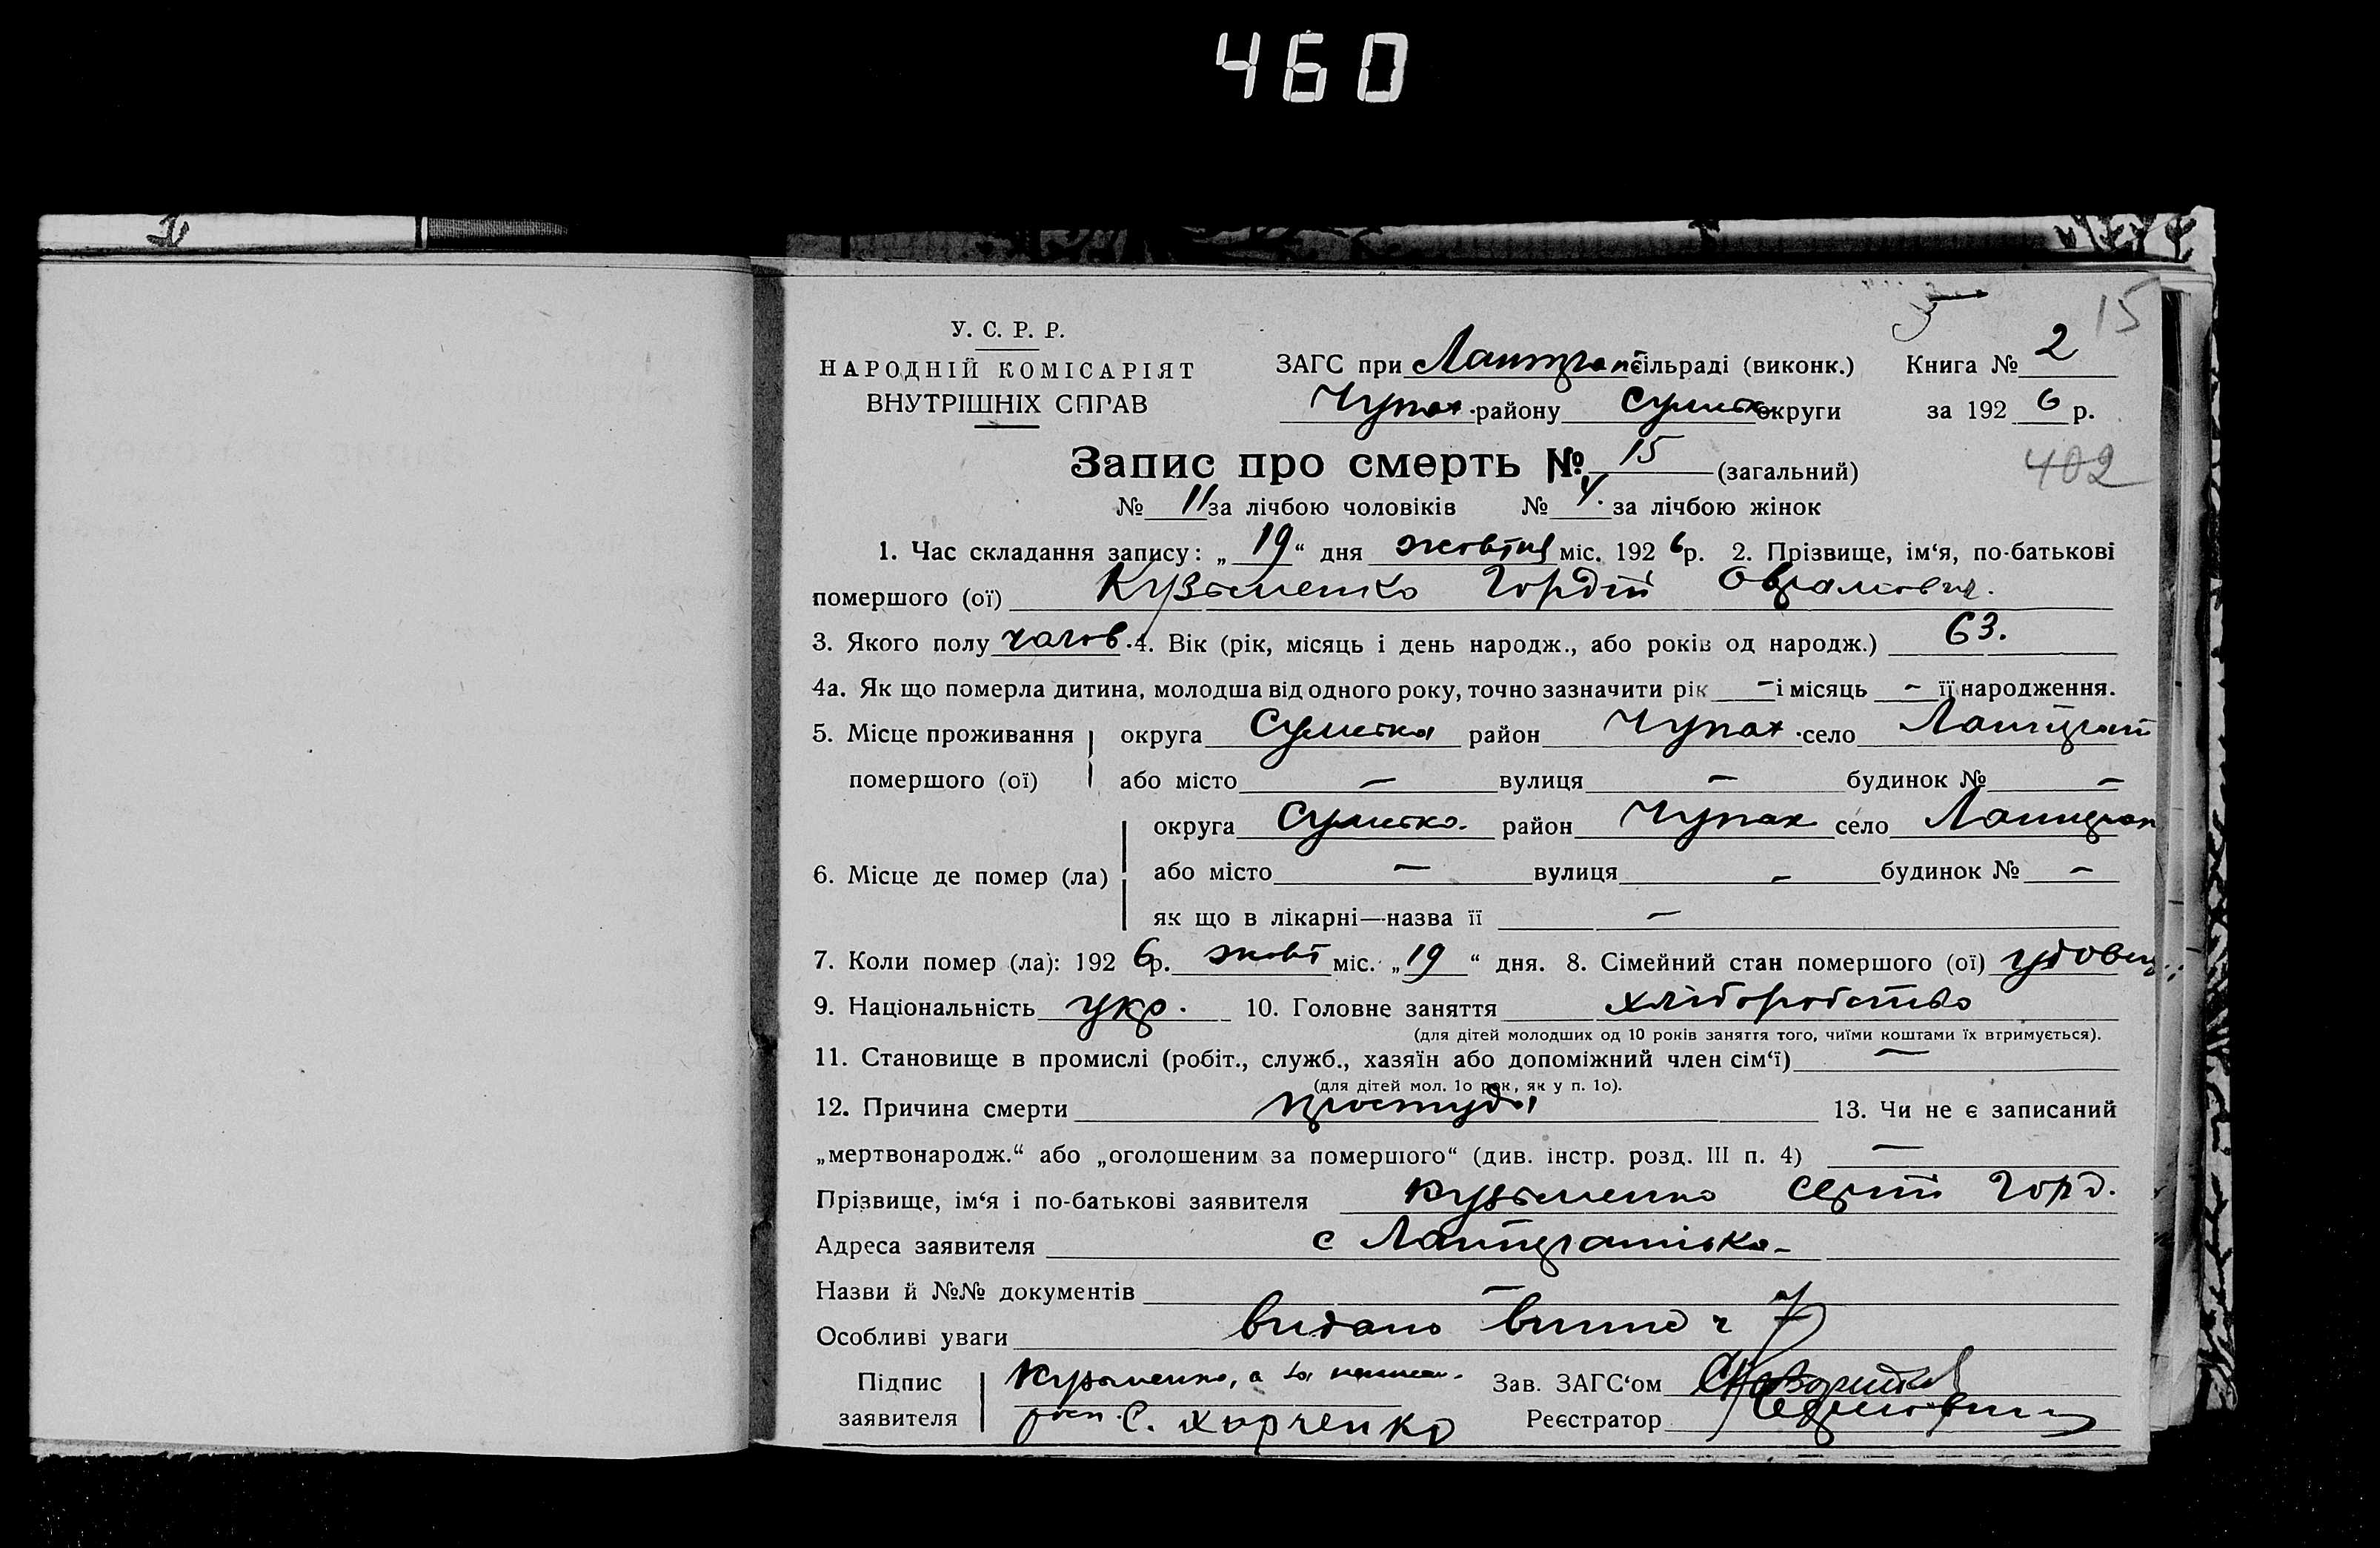 460
15
У. С. Р. Р.
НАРОДНІЙ КОМІСАРІЯТ
ВНУТРІШНІХ СПРАВ
ЗАГС при сільраді (виконк.) Книга № 2
Чупах. району Сумськ округи за 1926 р.
Запис про смерть № 15 (загальний)
402
№ 11 за лічбою чоловіків № 4. за лічбою жінок
1. Час складання запису: „ 19 “ дня жовтня міс. 1926 р. 2. Прізвище, ім‘я, по-батькові
помершого (ої) Кузьменко Гордій Овралмович.
3. Якого полу чолов. 4. Вік (рік, місяць і день народж., або років од народж.) 63.
4а. Як що померла дитина, молодша від одного року, точно зазначити рік — і місяць — її народження.
5. Місце проживання округа Сумська район Чупах. село
помершого (ої) або місто — вулиця — будинок № —
округа Сумска. район Чупах село
6. Місце де помер (ла) або місто — вулиця — будинок № —
як що в лікарні—назва її —
7. Коли помер (ла): 1926 р. жовт міс. „ 19 “ дня. 8. Сімейний стан помершого (ої) удовец
9. Національність укр. 10. Головне заняття хліборобство
(для дітей молодших од 10 років заняття того, чиїми коштами їх втримується).
11. Становище в промислі (робіт., служб., хазяїн або допоміжний член сім‘ї) —
(для дітей мол. 1о рок, як у п. 1о).
12. Причина смерти простуда 13. Чи не є записаний
„мертвонародж.“ або „оголошеним за помершого“ (див. інстр. розд. III п. 4) —
Прізвище, ім‘я і по-батькові заявителя Кузьменко Сергій Горд.
Адреса заявителя с
Назви й №№ документів —
Особливі уваги видано ч 7
Підпис Кузьменко, а за Зав. ЗАГС‘ом
заявителя росп. С. Харченко Реєстратор